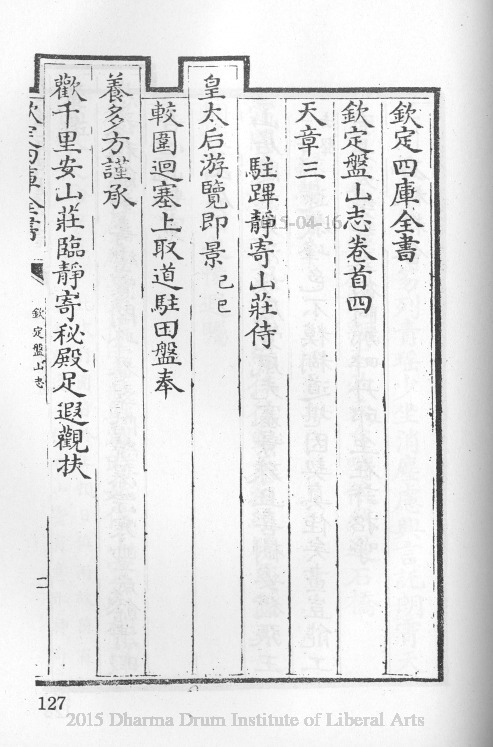 欽定四庫全書
欽定盤山志卷首四
天章三
駐蹕靜寄山莊侍
皇太后游覽即景 己巳
較圍迴塞上取道駐田盤奉
養多方謹承
歡千里安山莊臨靜寄秘殿足遐觀扶
欽定四庫全書
欽定盤山志
二
127
2015 Dharma Drum Institute of Liberal Arts